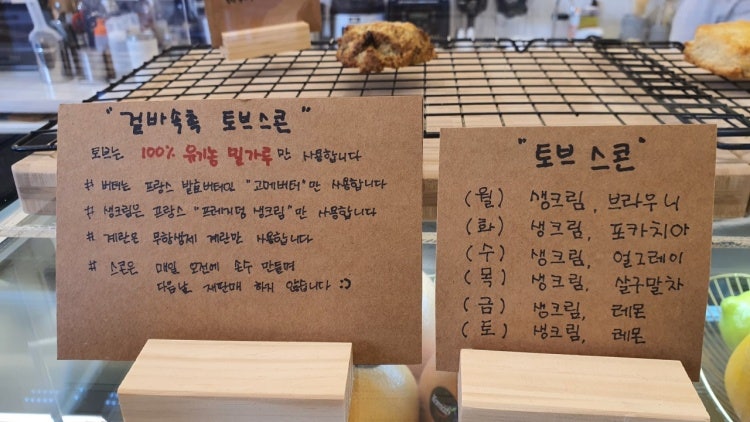 "겉바속촉 토브스콘"
토브는 100% 유기농 밀가루만 사용합니다
# 버터는 프랑스 발효버터인 "고메버터"만 사용합니다
# 생크림은 프랑스 "프레지덩 생크림"만 사용합니다
# 계란은 무항생제 계란만 사용합니다
# 스콘은 매일 오전에 손수 만들며
다음날 재판매 하지 않습니다 :)
"토브 스콘"
(월) 생크림, 브라우니
(화) 생크림, 포카치아
(수) 생크림, 얼그레이
(목) 생크림, 살구말차
(금) 생크림, 레몬
(토) 생크림, 레몬